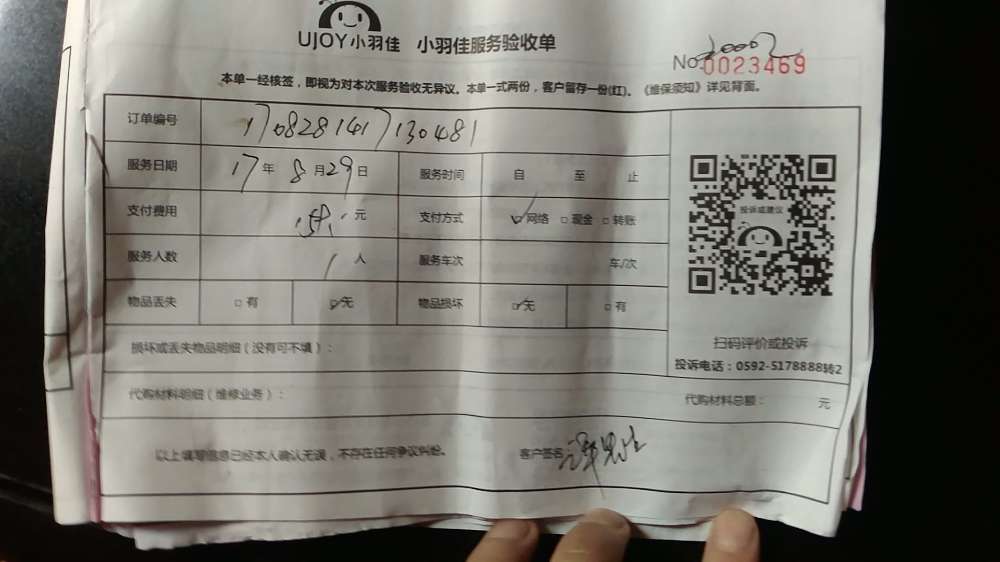 UJOY小羽佳 小羽佳服务验收单
No 0023469
本单一经核签，即视为对本次服务验收无异议。本单一式两份，客户留存一份(红)。《维保须知》详见背面。
订单编号 1708281417130481
服务日期 17年 8月29日 服务时间 自 至 止
支付费用 元 支付方式 网络 现金 转账
服务人数 1人 服务车次 车/次
物品丢失 有 无 物品损坏 无 有
投诉或建议
扫码评价或投诉
投诉电话：0592-5178888转2
损坏或丢失物品明细（没有可不填）：
代购材料明细（维修业务）： 代购材料总额： 元
以上填写信息已经本人确认无误，不存在任何争议纠纷。 客户签名